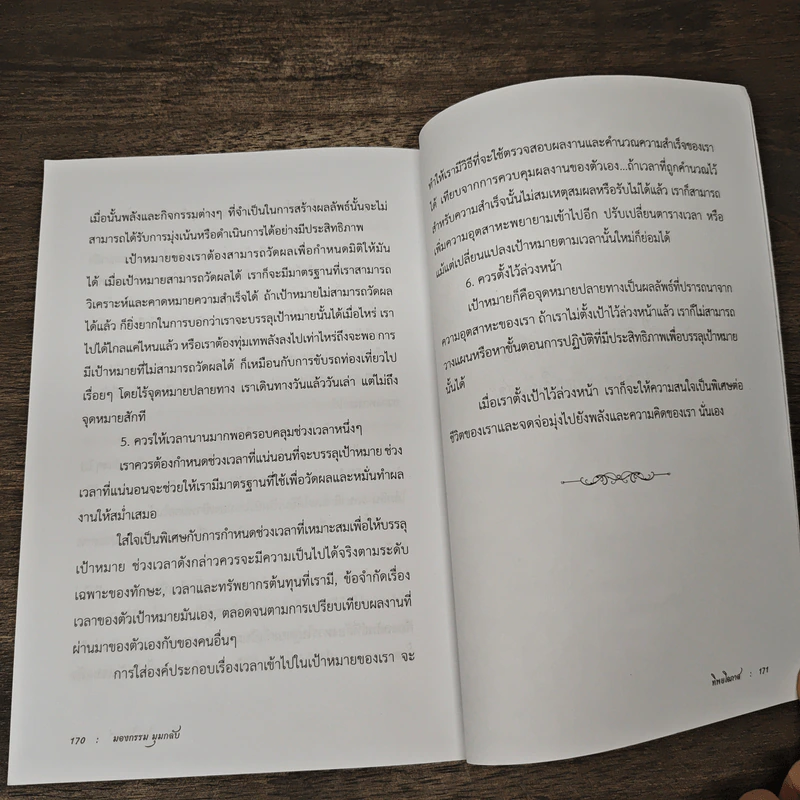 เมื่อนั้นพลังและกิจกรรมต่างๆ ที่จำเป็นในการสร้างผลลัพธ์นั้นจะไม่
สามารถได้รับการมุ่งเน้นหรือดำเนินการได้อย่างมีประสิทธิภาพ
เป้าหมายของเราต้องสามารถวัดผลเพื่อกำหนดมิติให้มัน
ได้ เมื่อเป้าหมายสามารถวัดผลได้ เราก็จะมีมาตรฐานที่เราสามารถ
วิเคราะห์และคาดหมายความสำเร็จได้ ถ้าเป้าหมายไม่สามารถวัดผล
ได้แล้ว ก็ยิ่งยากในการบอกว่าเราจะบรรลุเป้าหมายนั้นได้เมื่อไหร่ เรา
ไปได้ไกลแค่ไหนแล้ว หรือเราต้องทุ่มเทพลังลงไปเท่าไหร่ถึงจะพอ การ
มีเป้าหมายที่ไม่สามารถวัดผลได้ ก็เหมือนกับการขับรถท่องเที่ยวไป
เรื่อยๆ โดยไร้จุดหมายปลายทาง เราเดินทางวันแล้ววันเล่า แต่ไม่ถึง
จุดหมายสักที
5. ควรให้เวลานานมากพอครอบคลุมช่วงเวลาหนึ่งๆ
เราควรต้องกำหนดช่วงเวลาที่แน่นอนที่จะบรรลุเป้าหมาย ช่วง
เวลาที่แน่นอนจะช่วยให้เรามีมาตรฐานที่ใช้เพื่อวัดผลและหมั่นทำผล
งานให้สม่ำเสมอ
ใส่ใจเป็นพิเศษกับการกำหนดช่วงเวลาที่เหมาะสมเพื่อให้บรรลุ
เป้าหมาย ช่วงเวลาดังกล่าวควรจะมีความเป็นไปได้จริงตามระดับ
เฉพาะของทักษะ, เวลาและทรัพยากรต้นทุนที่เรามี, ข้อจำกัดเรื่อง
เวลาของตัวเป้าหมายมันเอง, ตลอดจนตามการเปรียบเทียบผลงานที่
ผ่านมาของตัวเองกับของคนอื่นๆ
การใส่องค์ประกอบเรื่องเวลาเข้าไปในเป้าหมายของเรา จะ
170 : มองกรรม มุมกลับ
ทำให้เรามีวิธีที่จะใช้ตรวจสอบผลงานและคำนวณความสำเร็จของเรา
ได้ เทียบจากการควบคุมผลงานของตัวเอง...ถ้าเวลาที่ถูกคำนวณไว้
สำหรับความสำเร็จนั้นไม่สมเหตุสมผลหรือรับไม่ได้แล้ว เราก็สามารถ
เพิ่มความอุตสาหะพยายามเข้าไปอีก ปรับเปลี่ยนตารางเวลา หรือ
แม้แต่เปลี่ยนแปลงเป้าหมายตามเวลานั้นใหม่ก็ย่อมได้
6. ควรตั้งไว้ล่วงหน้า
เป้าหมายก็คือจุดหมายปลายทางเป็นผลลัพธ์ที่ปรารถนาจาก
ความอุตสาหะของเรา ถ้าเราไม่ตั้งเป้าไว้ล่วงหน้าแล้ว เราก็ไม่สามารถ
วางแผนหรือหาขั้นตอนการปฏิบัติที่มีประสิทธิภาพเพื่อบรรลุเป้าหมาย
นั้นได้
เมื่อเราตั้งเป้าไว้ล่วงหน้า เราก็จะให้ความสนใจเป็นพิเศษต่อ
ชีวิตของเราและจดจ่อมุ่งไปยังพลังและความคิดของเรา นั่นเอง
: 171